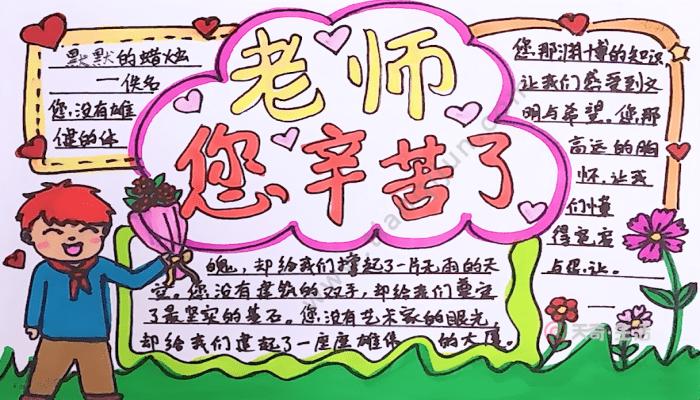 老师
您辛苦了
默默的蜡烛
——佚名
您没有雄
健的体
魄,却给我们撑起了一片无雨的天
空。您没有建筑的双手,却给我们奠定
了最坚实的基石。您没有艺术家的眼光
却给我们建起了一座座雄伟 的大厦。
您那渊博的知识
让我们感受到文
明与希望。您那
高远的胸
怀,让我
们懂
得宽容
与忍让。
天奇生活